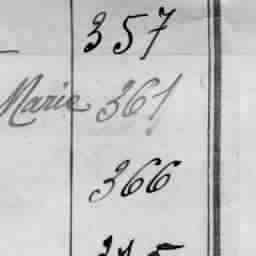 357
Marie 361
366